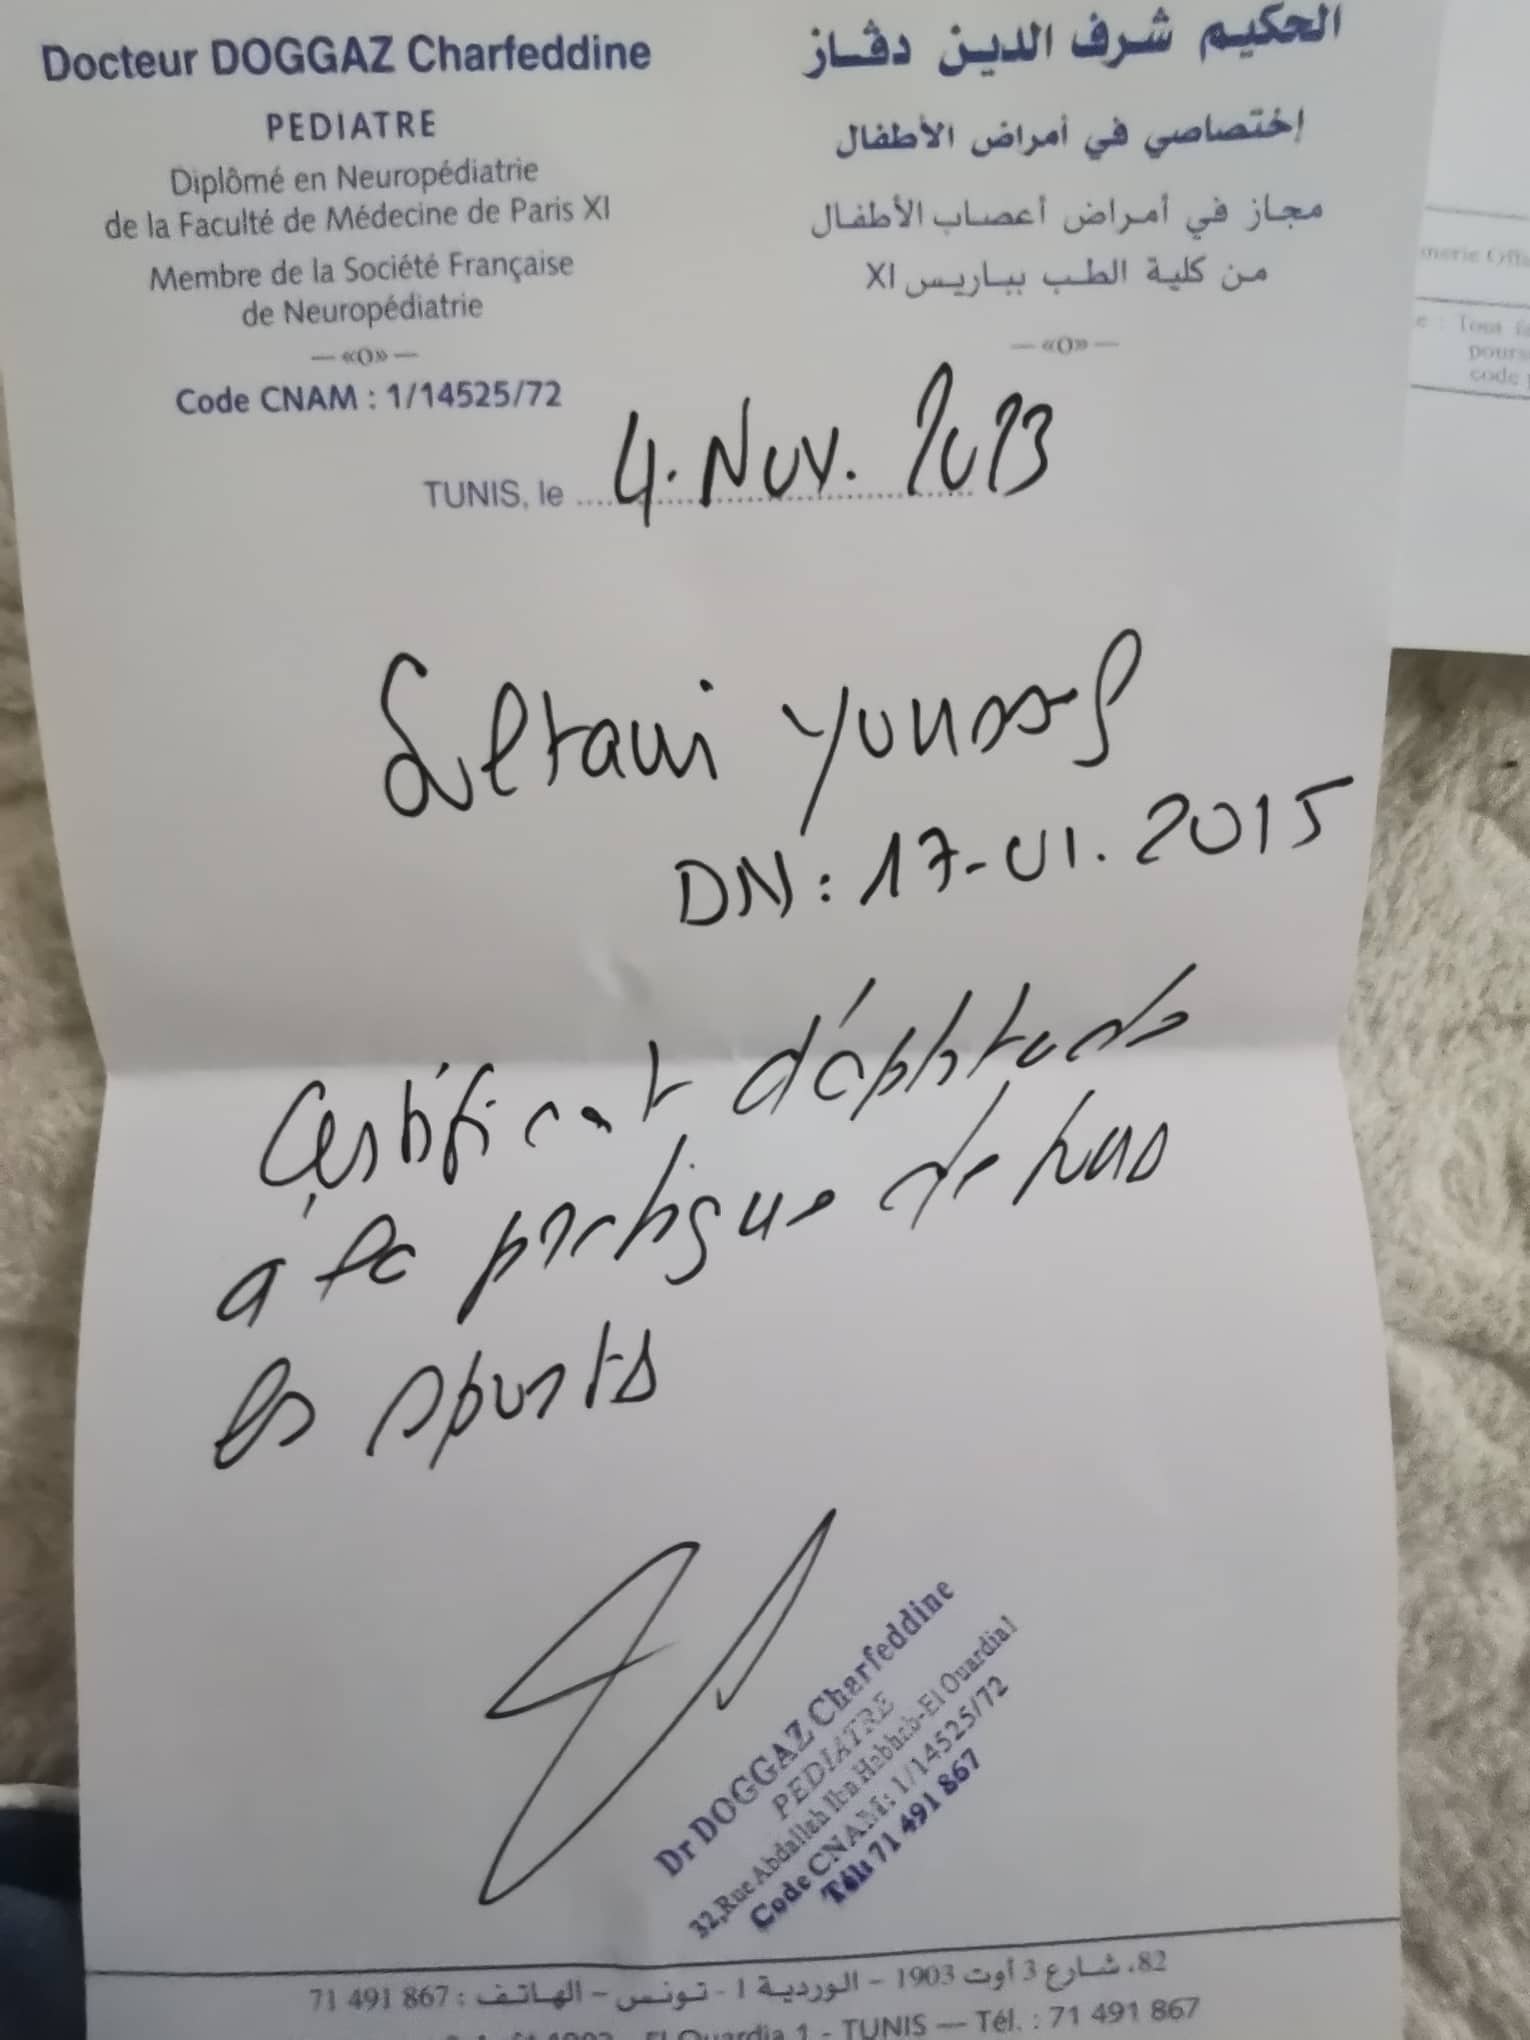 Docteur DOGGAZ Charfeddine
PEDIATRE
Diplômé en Neuropédiatrie
de la Faculté de Médecine de Paris XI
Membre de la Société Française
de Neuropédiatrie
—«O»—
Code CNAM : 1/14525/72
الحكيم شرف الدين دڤاز
إختصاصي في أمراض الأطفال
مجاز في أمراض أعصاب الأطفال
من كلية الطب بباريس XI
—«O»—
TUNIS, le 4. Nov. 2023
Seltani Youssef
DN : 17-01. 2015
Certificat d'aptitude
à la pratique de tous
les sports
Dr DOGGAZ Charfeddine
PEDIATRE
32,Rue Abdallah Ibn Habhab-El Ouardia1
Code CNAM: 1/14525/72
Tél: 71 491 867
82، شارع 3 أوت 1903 – الوردية 1 - تونس – الهاتف : 867 491 71
El Ouardia 1 - TUNIS — Tél. : 71 491 867
merie Offi
e : Tout fa
pours
code p